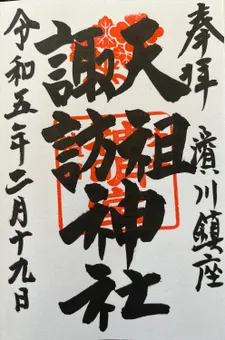 奉拝 濱川鎮座
天祖
諏訪神社
令和五年二月十九日